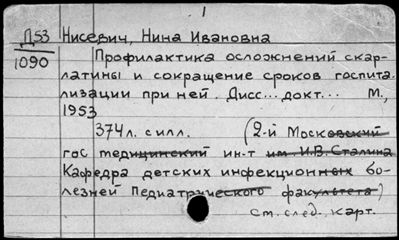 1
Д53 Нисевич, Нина Ивановна
1090 Профилактика осложнений скар-
латины и сокращение сроков госпита-
лизации при ней. Дисс... докт... М.,
1953
374 л. с илл. (2-й Московский
гос медицинский ин-т им. И.В. Сталина
Кафедра детских инфекционных бо-
лезней педиатрического факультета)
См. след. карт.